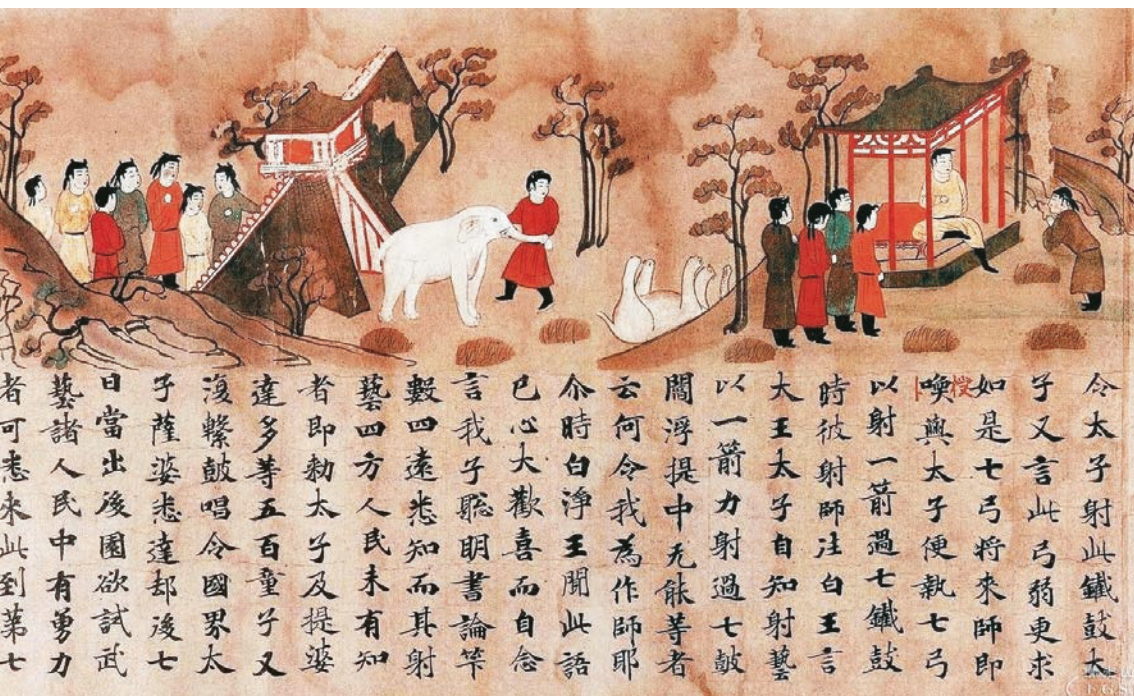 令太子射此鐵鼓太
子又言此弓弱更求
如是七弓将来師即
授
喚與太子便執七弓
以射一箭過七鐵鼓
時彼射師注白王言
大王太子自知射藝
以一箭力射過七皷
閻浮提中无能等者
云何令我為作師耶
尒時白淨王聞此語
已心大歡喜而自念
言我子聡明書論筭
數四遠悉知而其射
藝四方人民未有知
者即勑太子及提婆
達多等五百童子又
復擊鼓唱令國界太
子薩婆悉達却後七
日當出後園欲試武
藝諸人民中有勇力
者可悉來此到第七